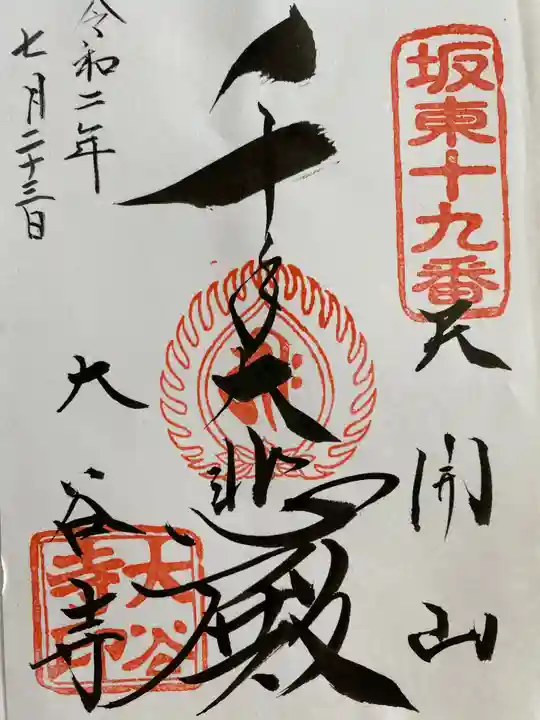 坂東十九番
天開山
千手大悲殿
大谷寺
大谷寺印
令和二年
七月二十三日